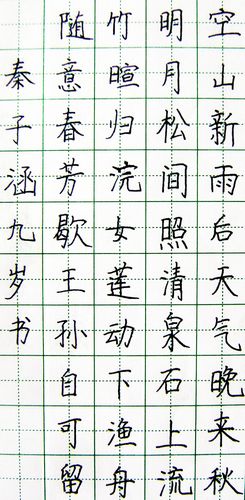 空山新雨后天气晚来秋
明月松间照清泉石上流
竹暄归浣女莲动下渔舟
随意春芳歇王孙自可留
秦子涵九岁书